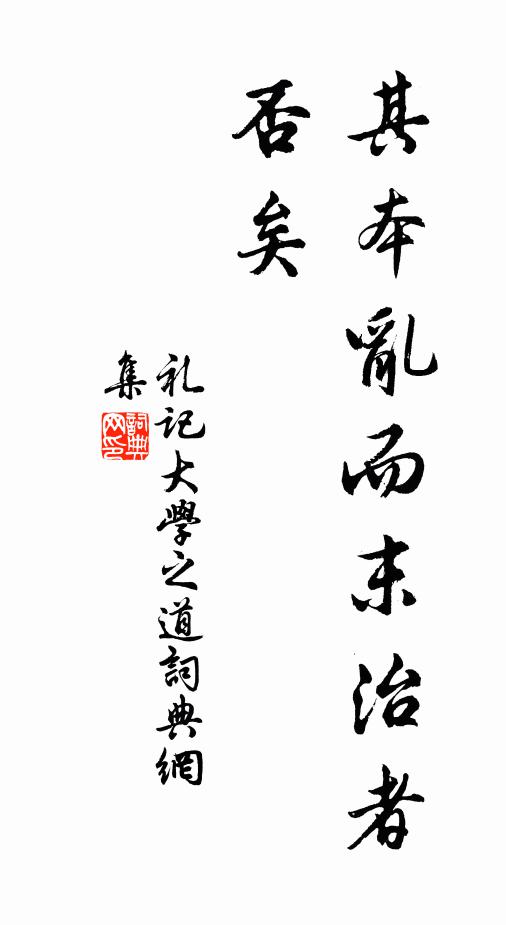 其本亂而末治者
否矣
礼記大學之道詞典網
集
詞典
网印